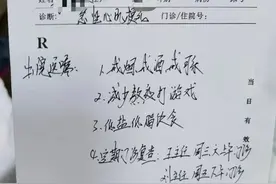 诊断: 急性心肌梗死 门诊/住院号:
R
出院医嘱: 1.戒烟戒酒戒
2.减少熬夜打游戏
3.低盐低脂饮食
4.定期门诊复查: 王主任 周三上午门诊
刘主任 周五下午门诊
当日有效